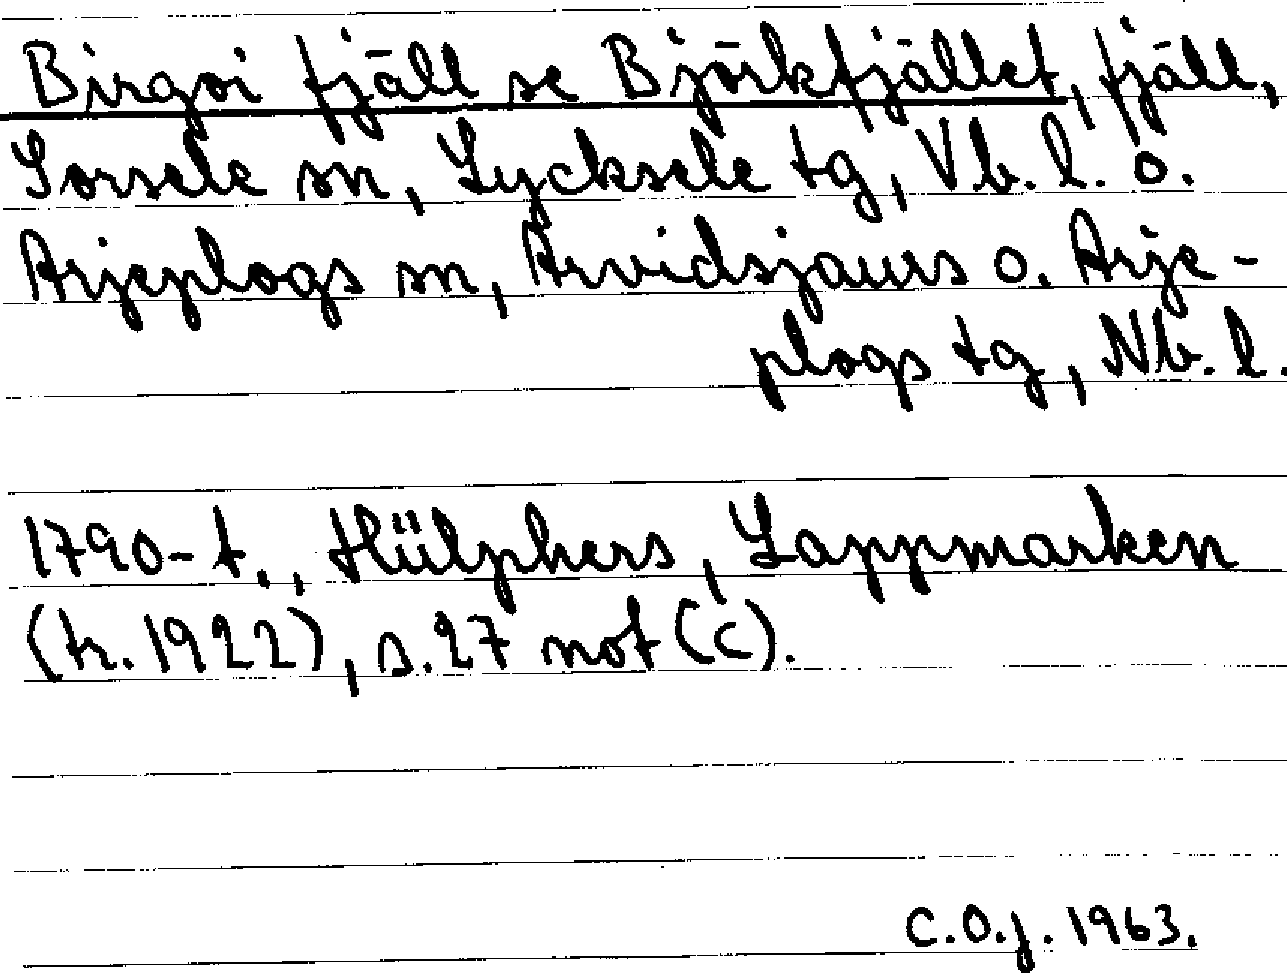 Birgoi fjäll se Björkfjället, fjäll,
Sorsele sn, Lycksele tg, Vb. l. o.
Arjeplogs sn, Arvidsjaurs o. Arje-
plogs tg, Nb. l.
1790-t., Hülphers, Lappmarken
(tr. 1922), s. 27 not (c).
C.O.j. 1963.